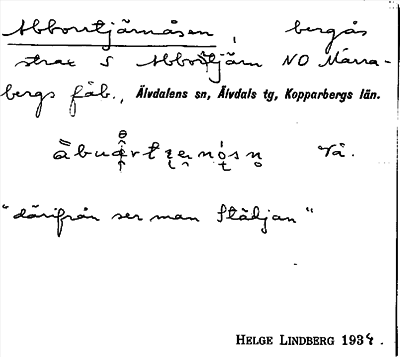 Abborrtjärnåsen, bergås
strax S Abborrtjärn NO Märra-
bergs fäb., Älvdalens sn, Älvdals tg, Kopparbergs län.
Vå.
"därifrån ser man Städjan"
HELGE LINDBERG 1934.